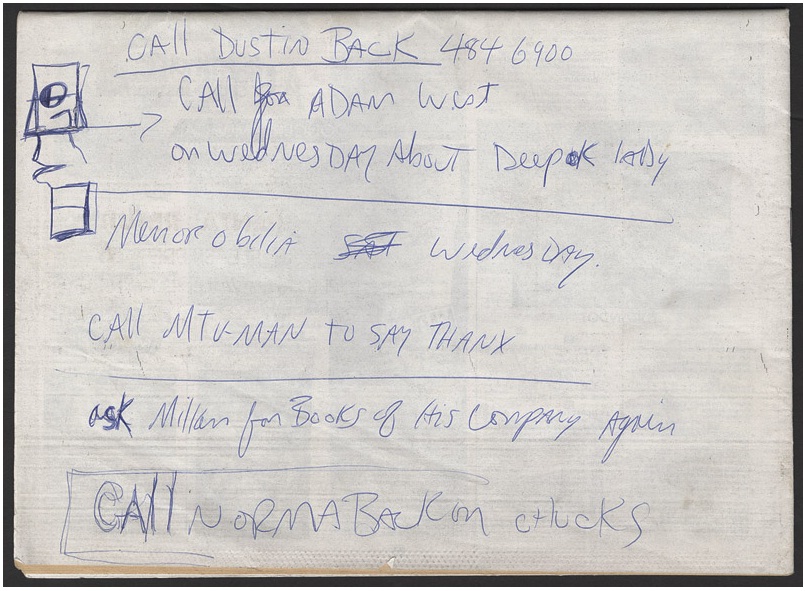 CAll DUSTIN BACK 484 6900
CAll for ADAM West
on WednesDAY About Deepak lady
Memorobilia SAT WednesDAY.
CAll MTV-MAN TO SAY THANX
ask Millan for Books of His Company Again
CAll NORMA BACK on cHucKS